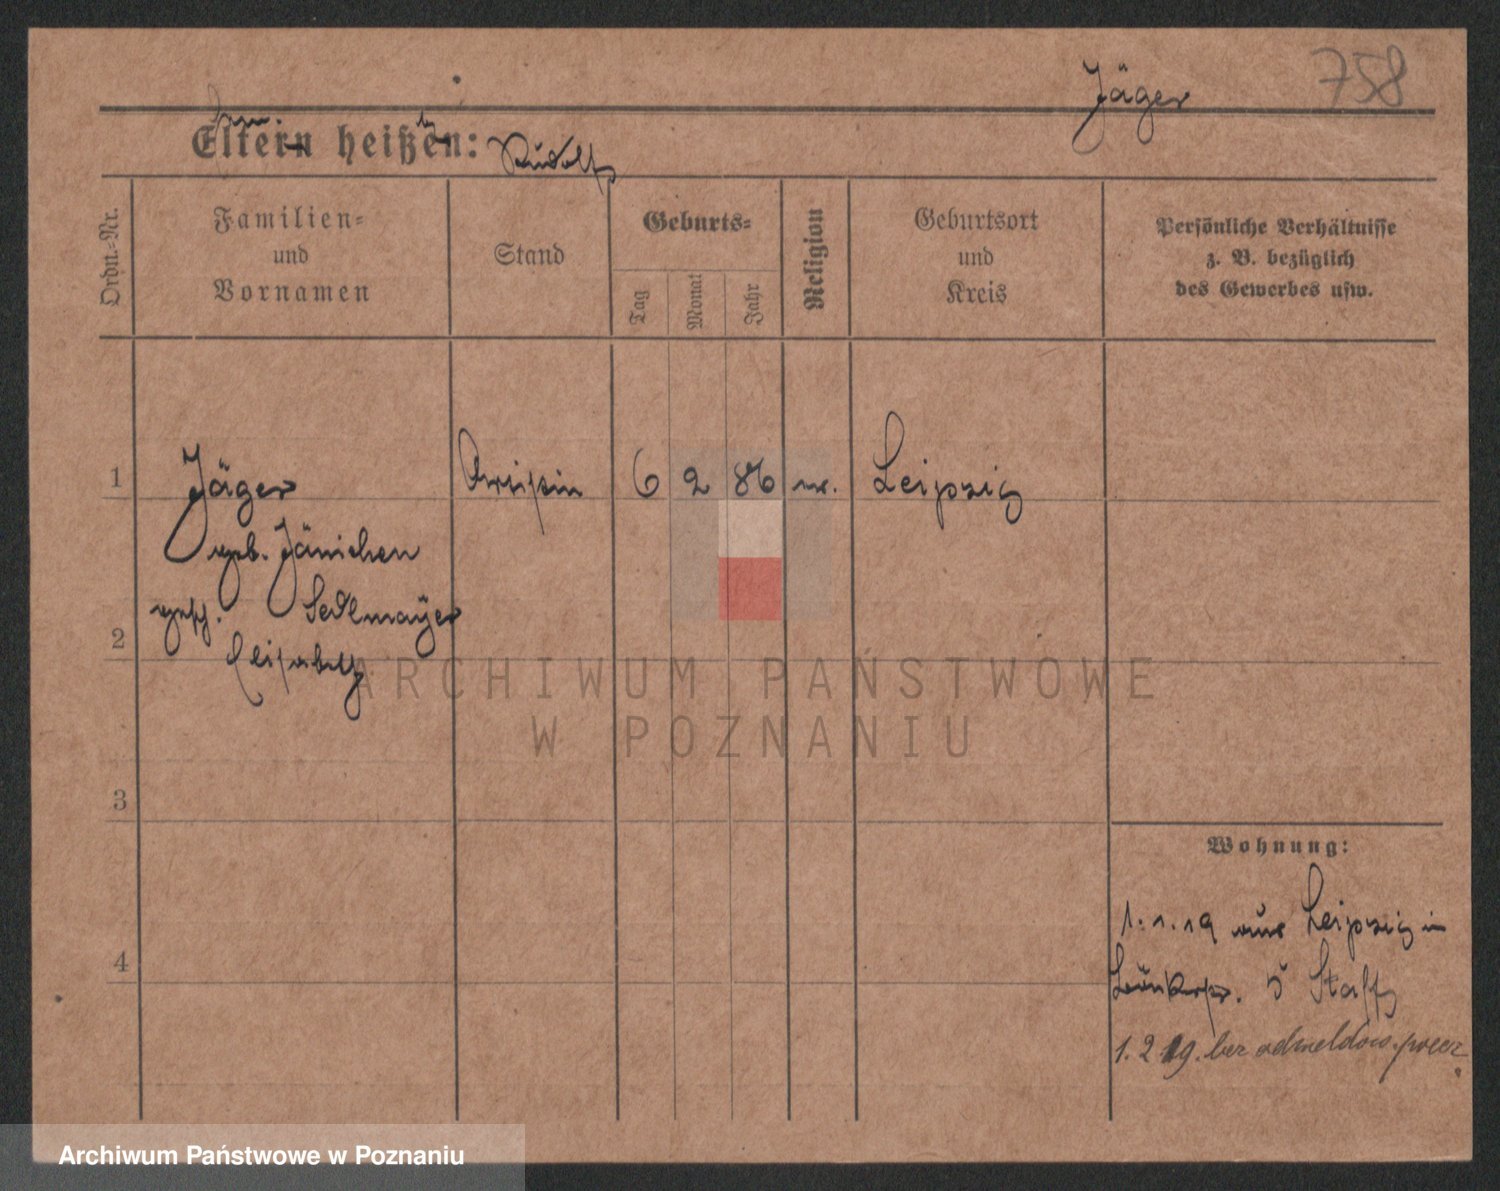 Jäger
758
Eltern heißen: Rudolf
Ordn.-Nr.
Familien-
und
Vornamen
Stand
Geburts-
Tag
Monat
Jahr
Religion
Geburtsort
und
Kreis
Persönliche Verhältnisse
z. B. bezüglich
des Gewerbes usw.
1
Jäger
6
2
86
Leipzig
geb. Jänichen
2
gesch. Sedlmayer
Elisabeth
ARCHIWUM PAŃSTWOWE
W POZNANIU
3
Wohnung:
1.1.19 aus Leipzig in
4
5 Staff
1.2.19. bez odmeldow.
Archiwum Państwowe w Poznaniu